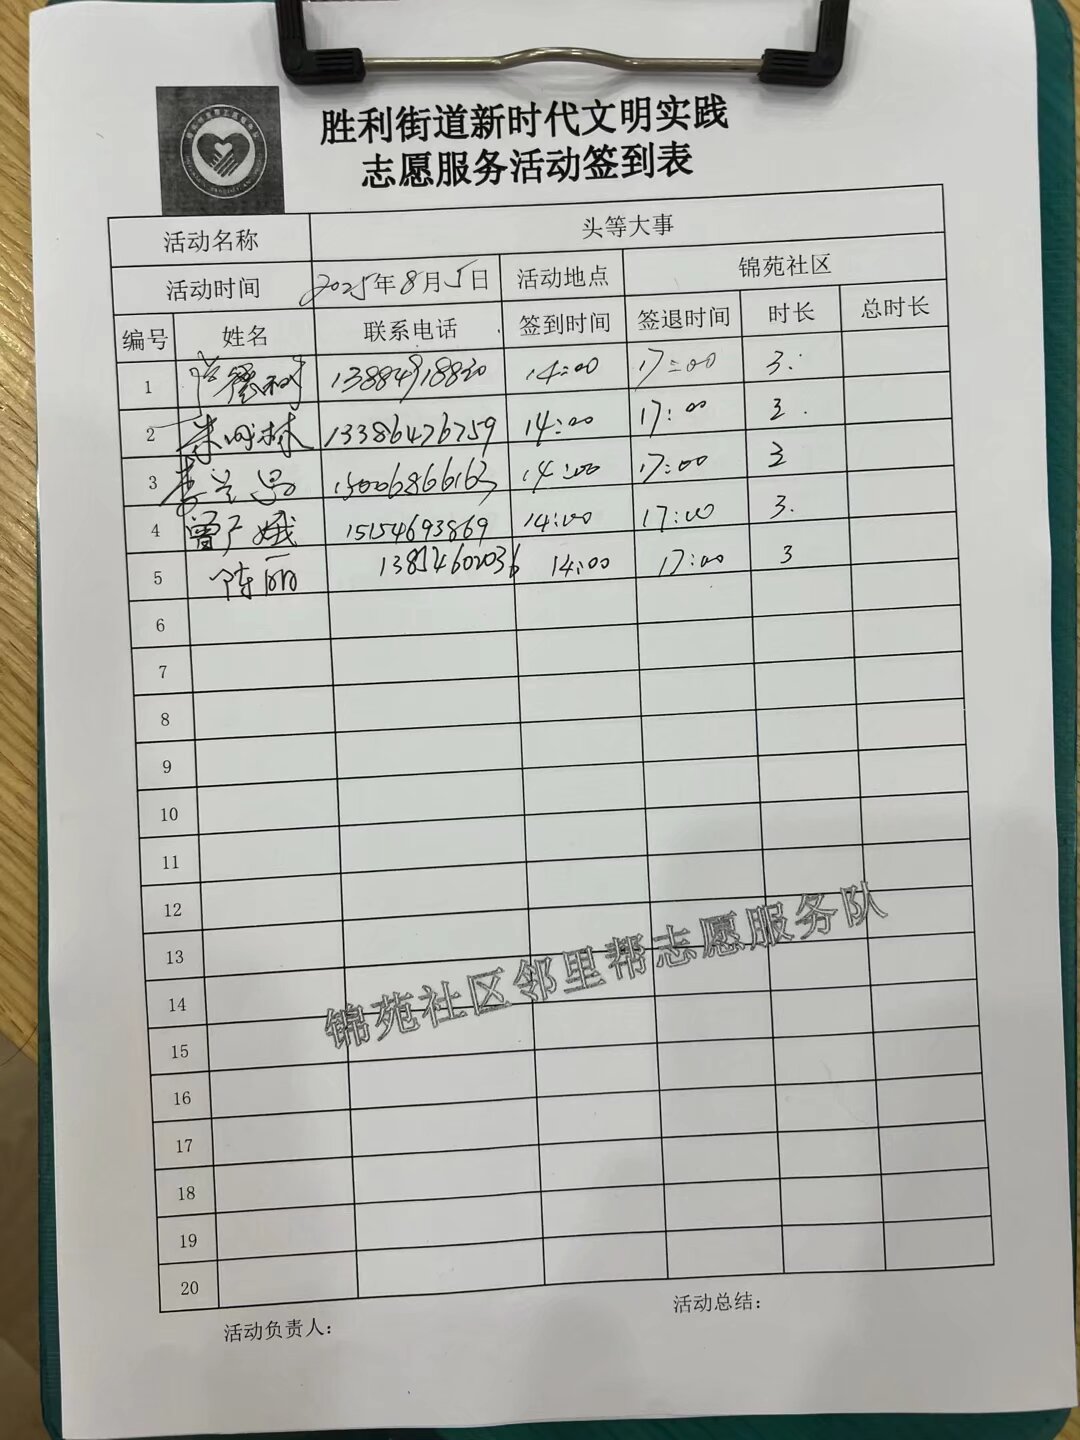 胜利街道新时代文明实践
志愿服务活动签到表
活动名称 头等大事
活动时间 2025年8月5日 活动地点 锦苑社区
编号 姓名 联系电话 签到时间 签退时间 时长 总时长
1 13884918830 14:00 17:00 3.
2 朱 林 13386476759 14:00 17:00 3.
3 李兰 15006866163 14:00 17:00 3
4 曾广娥 15154693869 14:00 17:00 3.
5 陈丽 13854602036 14:00 17:00 3
6
7
8
9
10
11
12
13
14
15
16
17
18
19
20
锦苑社区邻里帮志愿服务队
活动负责人： 活动总结：